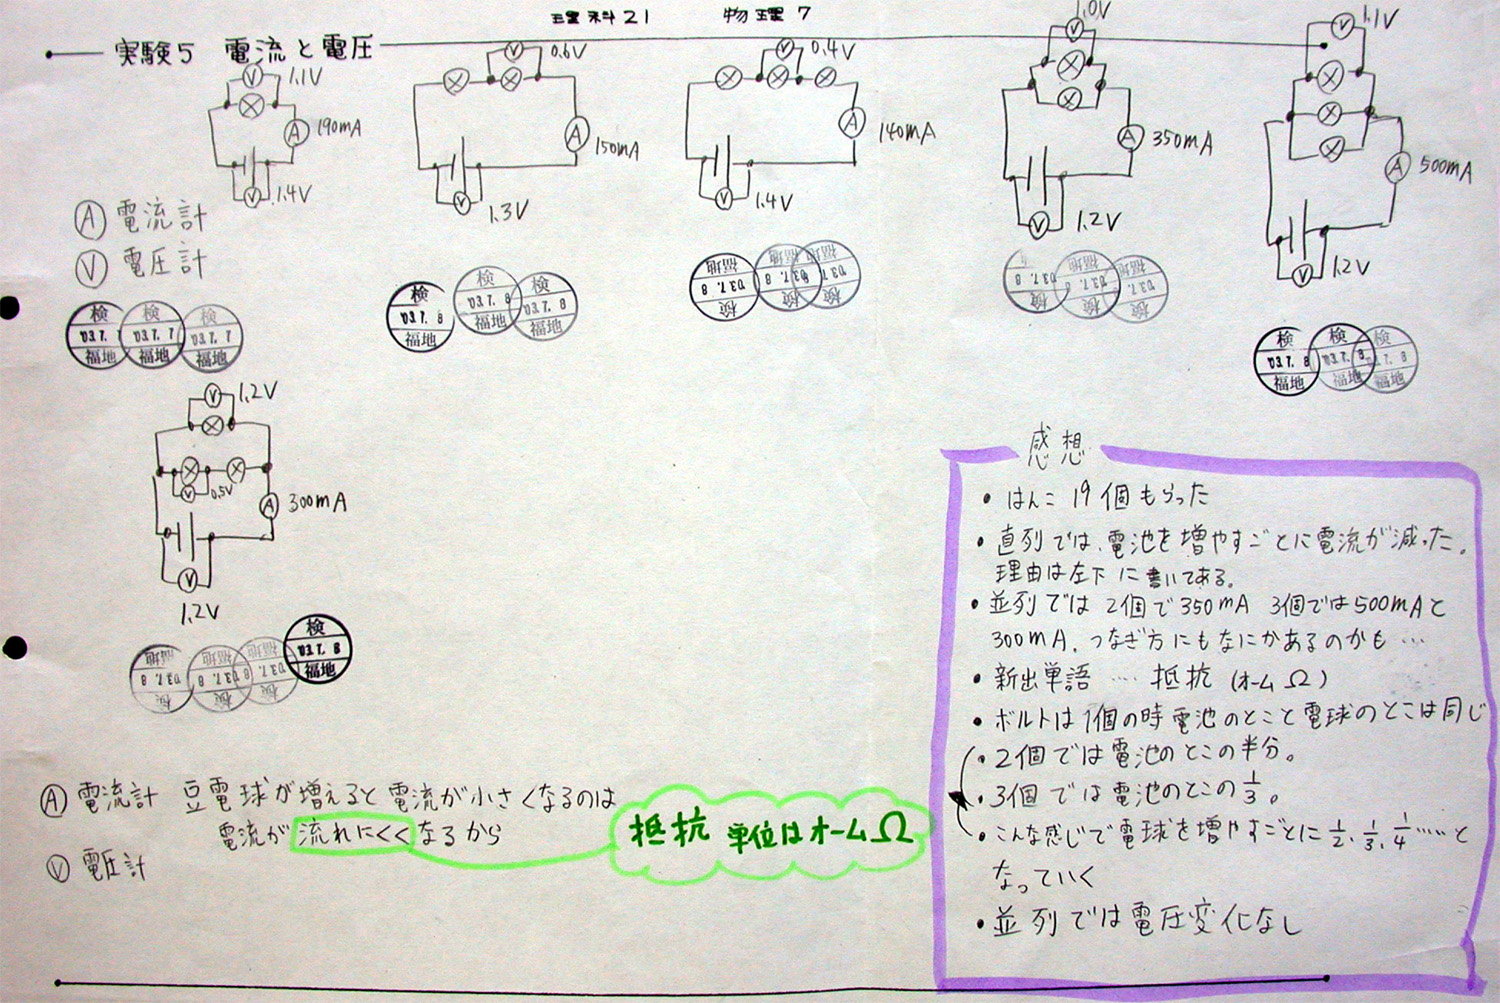 理科21 物理7
実験5 電流と電圧
1.1V
190mA
1.4V
0.6V
150mA
1.3V
0.4V
140mA
1.4V
1.0V
350mA
1.2V
1.1V
500mA
1.2V
Ⓐ 電流計
Ⓥ 電圧計
検 '03.7.7 福地
検 '03.7.7 福地
検 '03.7.7 福地
検 '03.7.8 福地
検 '03.7.8 福地
検 '03.7.8 福地
検 '03.7.8 福地
検 '03.7.8 福地
検 '03.7.8 福地
検 '03.7.8 福地
検 '03.7.8 福地
検 '03.7.8 福地
検 '03.7.8 福地
検 '03.7.8 福地
検 '03.7.8 福地
1.2V
0.5V
300mA
1.2V
検 '03.7.8 福地
検 '03.7.8 福地
検 '03.7.8 福地
検 '03.7.8 福地
Ⓐ 電流計 豆電球が増えると電流が小さくなるのは
電流が流れにくくなるから
Ⓥ 電圧計
抵抗 単位はオームΩ
感想
・はんこ 19個もらった
・直列では、電池を増やすごとに電流が減った。
理由は左下に書いてある。
・並列では 2個で350mA 3個では500mAと
300mA.つなぎ方にもなにかあるのかも…
・新出単語 …. 抵抗(オームΩ)
・ボルトは1個の時電池のとこと電球のとこは同じ
・2個では電池のとこの半分。
・3個では電池のとこの1/3。
・こんな感じで電球を増やすごとに1/2、1/3、1/4……と
なっていく
・並列では電圧変化なし